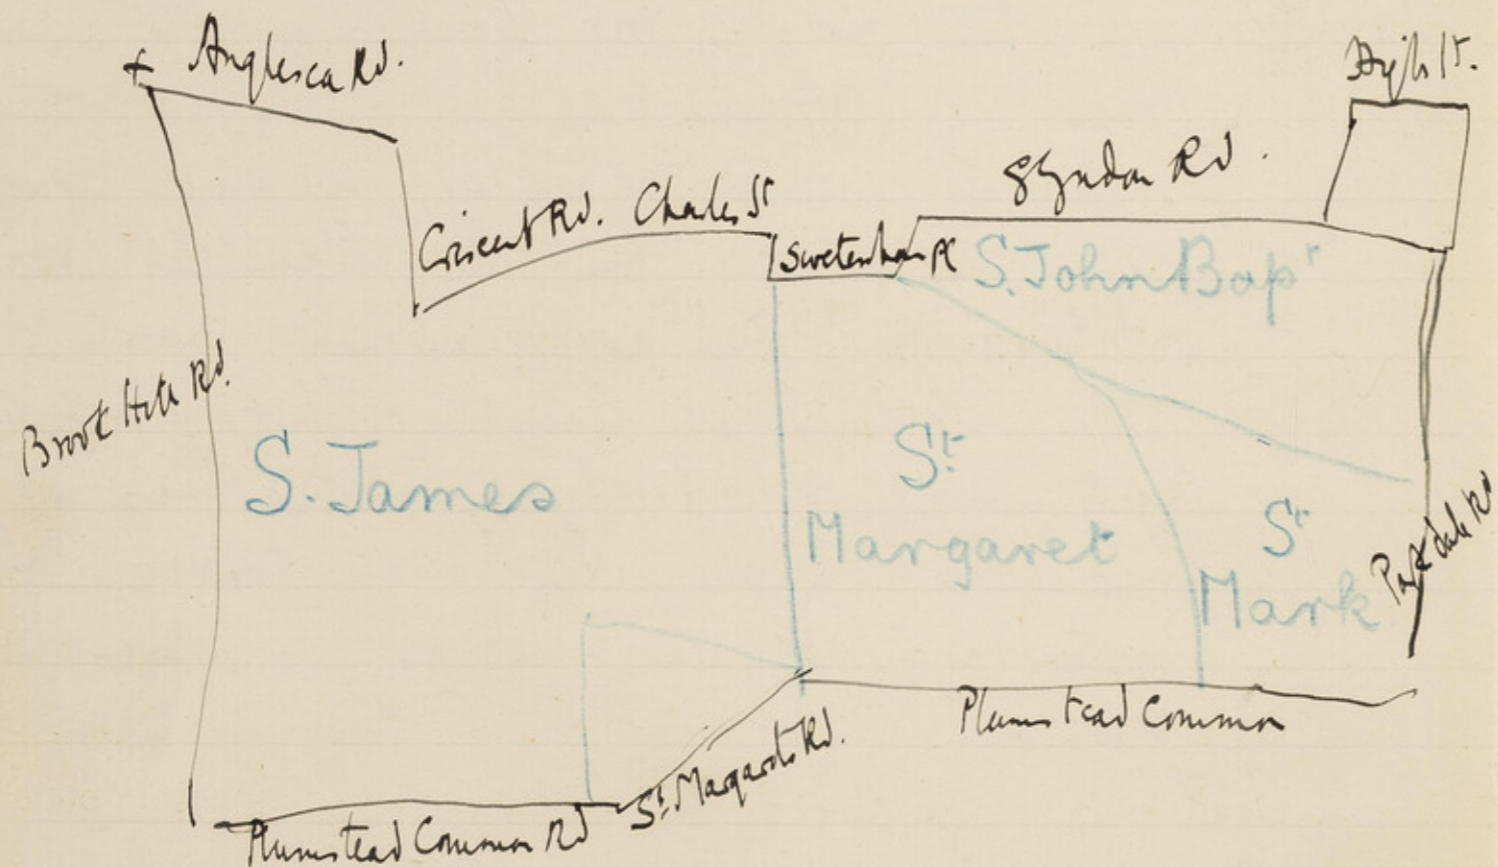 + Anglesea Rd.
High St.
Glyndon Rd.
Crescent Rd. Charles St
Swetenham Pl
S. John Bapt
Brook Hill Rd.
S. James
St Margaret
St Mark
Plumstead Common
St. Margarets Rd.
Plumstead Common Rd